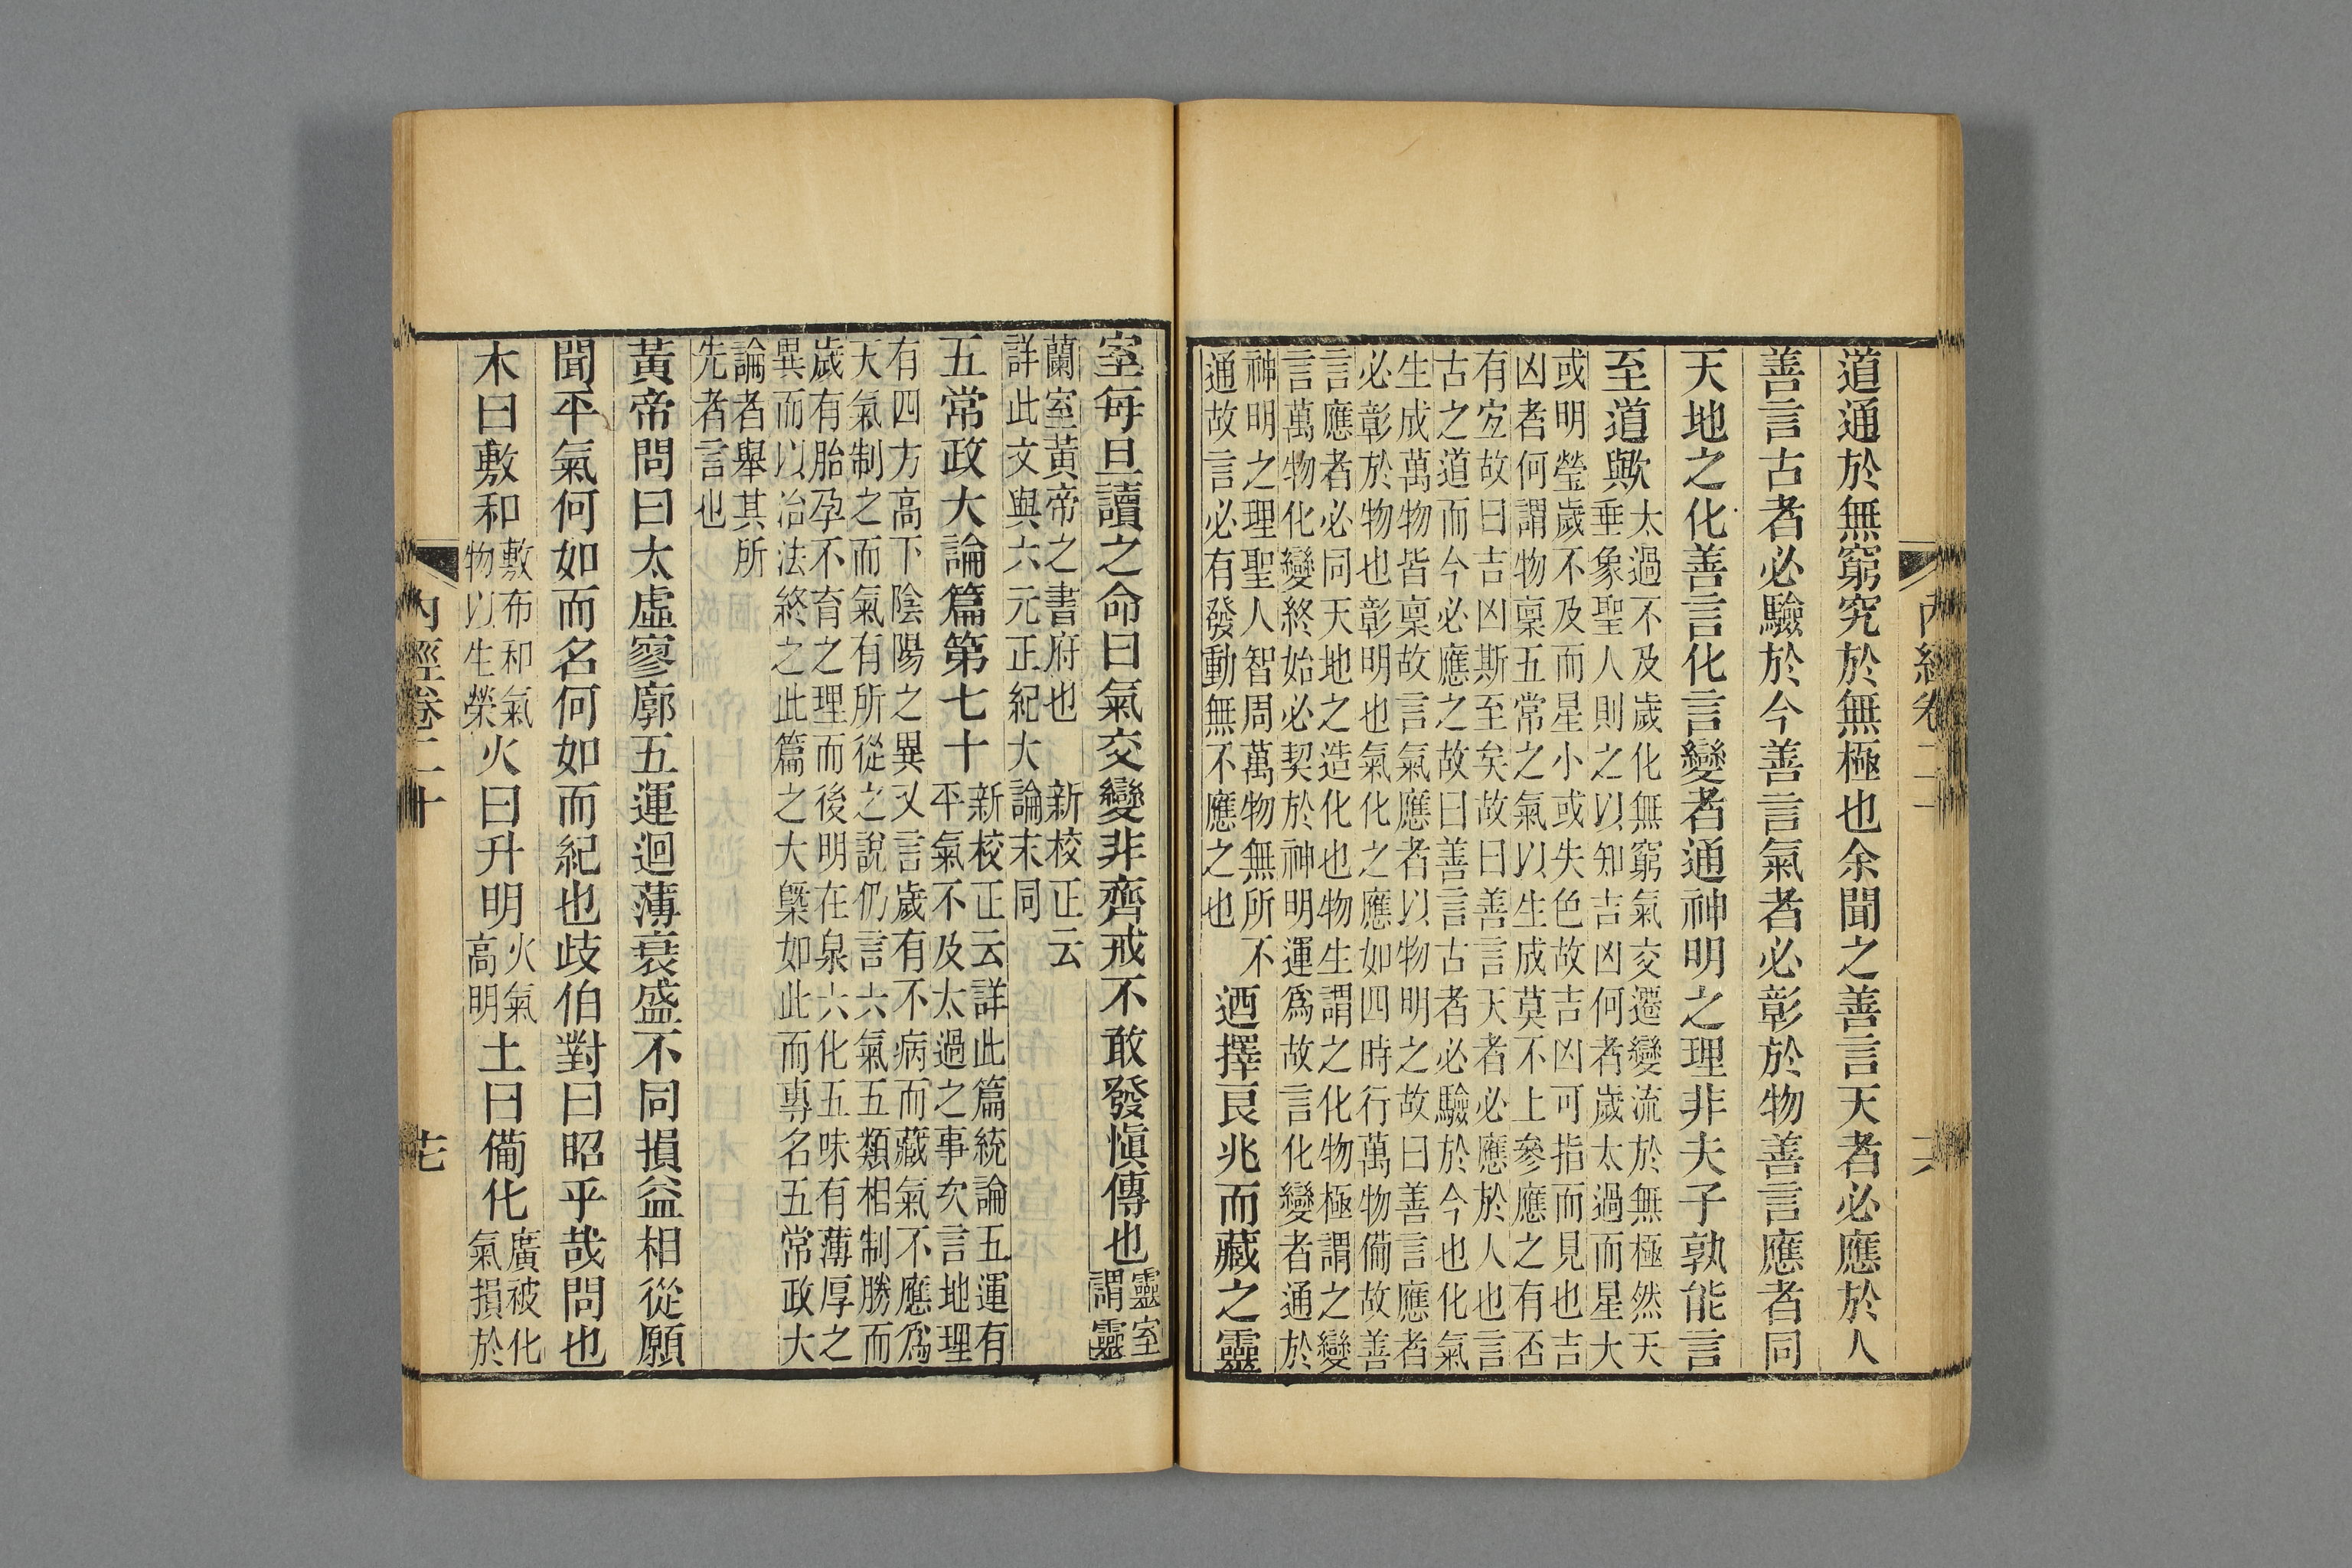 內經卷二十
六
道通於無窮究於無極也余聞之善言天者必應於人
善言古者必驗於今善言氣者必彰於物善言應者同
天地之化善言化言變者通神明之理非夫子孰能言
至道歟
太過不及歲化無窮氣交遷變流於無極然天
垂象聖人則之以知吉凶何者歲太過而星大
或明瑩歲不及而星小或失色故吉凶可指而見也吉
凶者何謂物稟五常之氣以生成莫不上參應之有否
有宐故曰吉凶斯至矣故曰善言天者必應於人也言
古之道而今必應之故曰善言古者必驗於今也化氣
生成萬物皆稟故言氣應者以物明之故曰善言應者
必彰於物也彰明也氣化之應如四時行萬物備故善
言應者必同天地之造化也物生謂之化物極謂之變
言萬物化變終始必契於神明運爲故言化變者通於
神明之理聖人智周萬物無所不
通故言必有發動無不應之也
迺擇良兆而藏之靈
室每旦讀之命曰氣交變非齊戒不敢發慎傳也
靈室
謂靈
蘭室黃帝之書府也 新校正云
詳此文與六元正紀大論末同
五常政大論篇第七十
新校正云詳此篇統論五運有
平氣不及太過之事次言地理
有四方高下陰陽之異又言歲有不病而藏氣不應爲
天氣制之而氣有所從之說仍言六氣五類相制勝而
歲有胎孕不育之理而後明在泉六化五味有薄厚之
異而以治法終之此篇之大槩如此而專名五常政大
論者舉其所
先者言也
黃帝問曰太虛寥廓五運迴薄衰盛不同損益相從願
聞平氣何如而名何如而紀也歧伯對曰昭乎哉問也
木曰敷和
敷布和氣
物以生榮
火曰升明
火氣
高明
土曰備化
廣被化
氣損於
內經卷二十